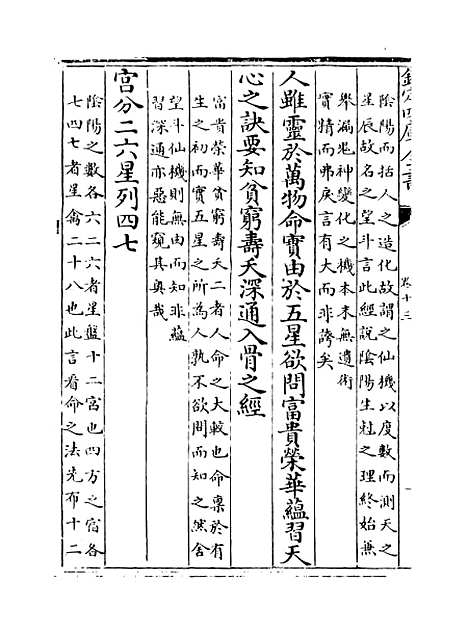 欽定四庫全書
卷十三
陰陽而括人之造化故謂之仙機以度數而測天之
星辰故名之望斗言此經說陰陽生尅之理終始無
舉漏鬼神變化之機本末無遺術
實精而弗戾言有大而非誇矣
人雖靈於萬物命實由於五星欲問富貴榮華蘊習天
心之訣要知貧窮壽夭深通入骨之經
富貴榮華貧窮壽夭二者人命之大較也命稟於有
生之初而實五星之所為人孰不欲問而知之然舍
望斗仙機則無由而知非蘊
習深通亦惡能窺其奧哉
宫分二六星列四七
陰陽之數各六二六者星盤十二宫也四方之宿各
七四七者星禽二十八也此言看命之法先布十二